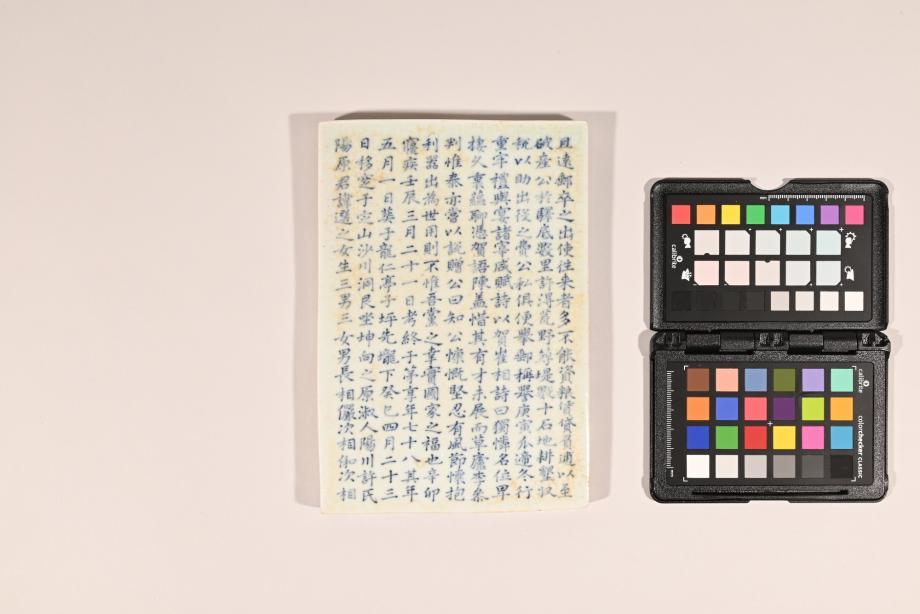 且遠郵卒之出使往来者多不能資粮賃貸負逋以至
破産公於驛底數里許得荒野築堤數十石地耕墾収
稅以助出役之費公私俱便擧郵稱擧庚寅瓜適冬行
重牢禮與宴諸宰咸賦詩以賀崔相詩曰獨憐名位卑
棲久裏蘊聊憑賀語陳盖惜其有才未展而草廬李叅
判惟泰亦嘗以説贈公曰知公慷慨堅忍有風節懷抱
利器出為世用則不惟吾黨之幸實國家之福也辛卯
寢疾壬辰三月二十一日考終于第享年七十八其年
五月一日葬于龍仁亭子坪先壠下癸巳四月二十三
日移窆于空山沙川洞艮坐坤向之原淑人陽川許氏
陽原君諱選之女生三男三女男長相儼次相伽次相
calibrite
calibrite
colorchecker CLASSIC